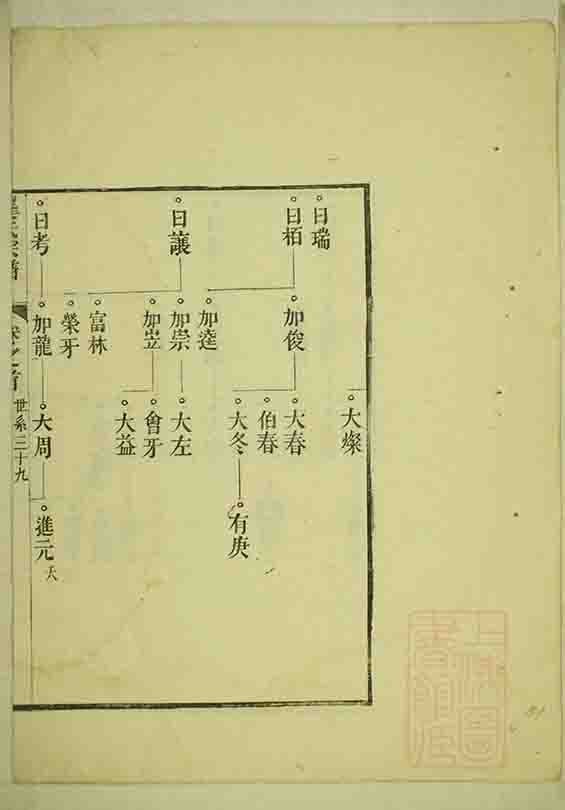 大燦
日瑞
日栢
加俊
大春
伯春
大冬
有庚
加達
日讓
加崇
大左
加岦
會牙
大益
富林
榮牙
日考
加龍
大周
進元
世系三十九